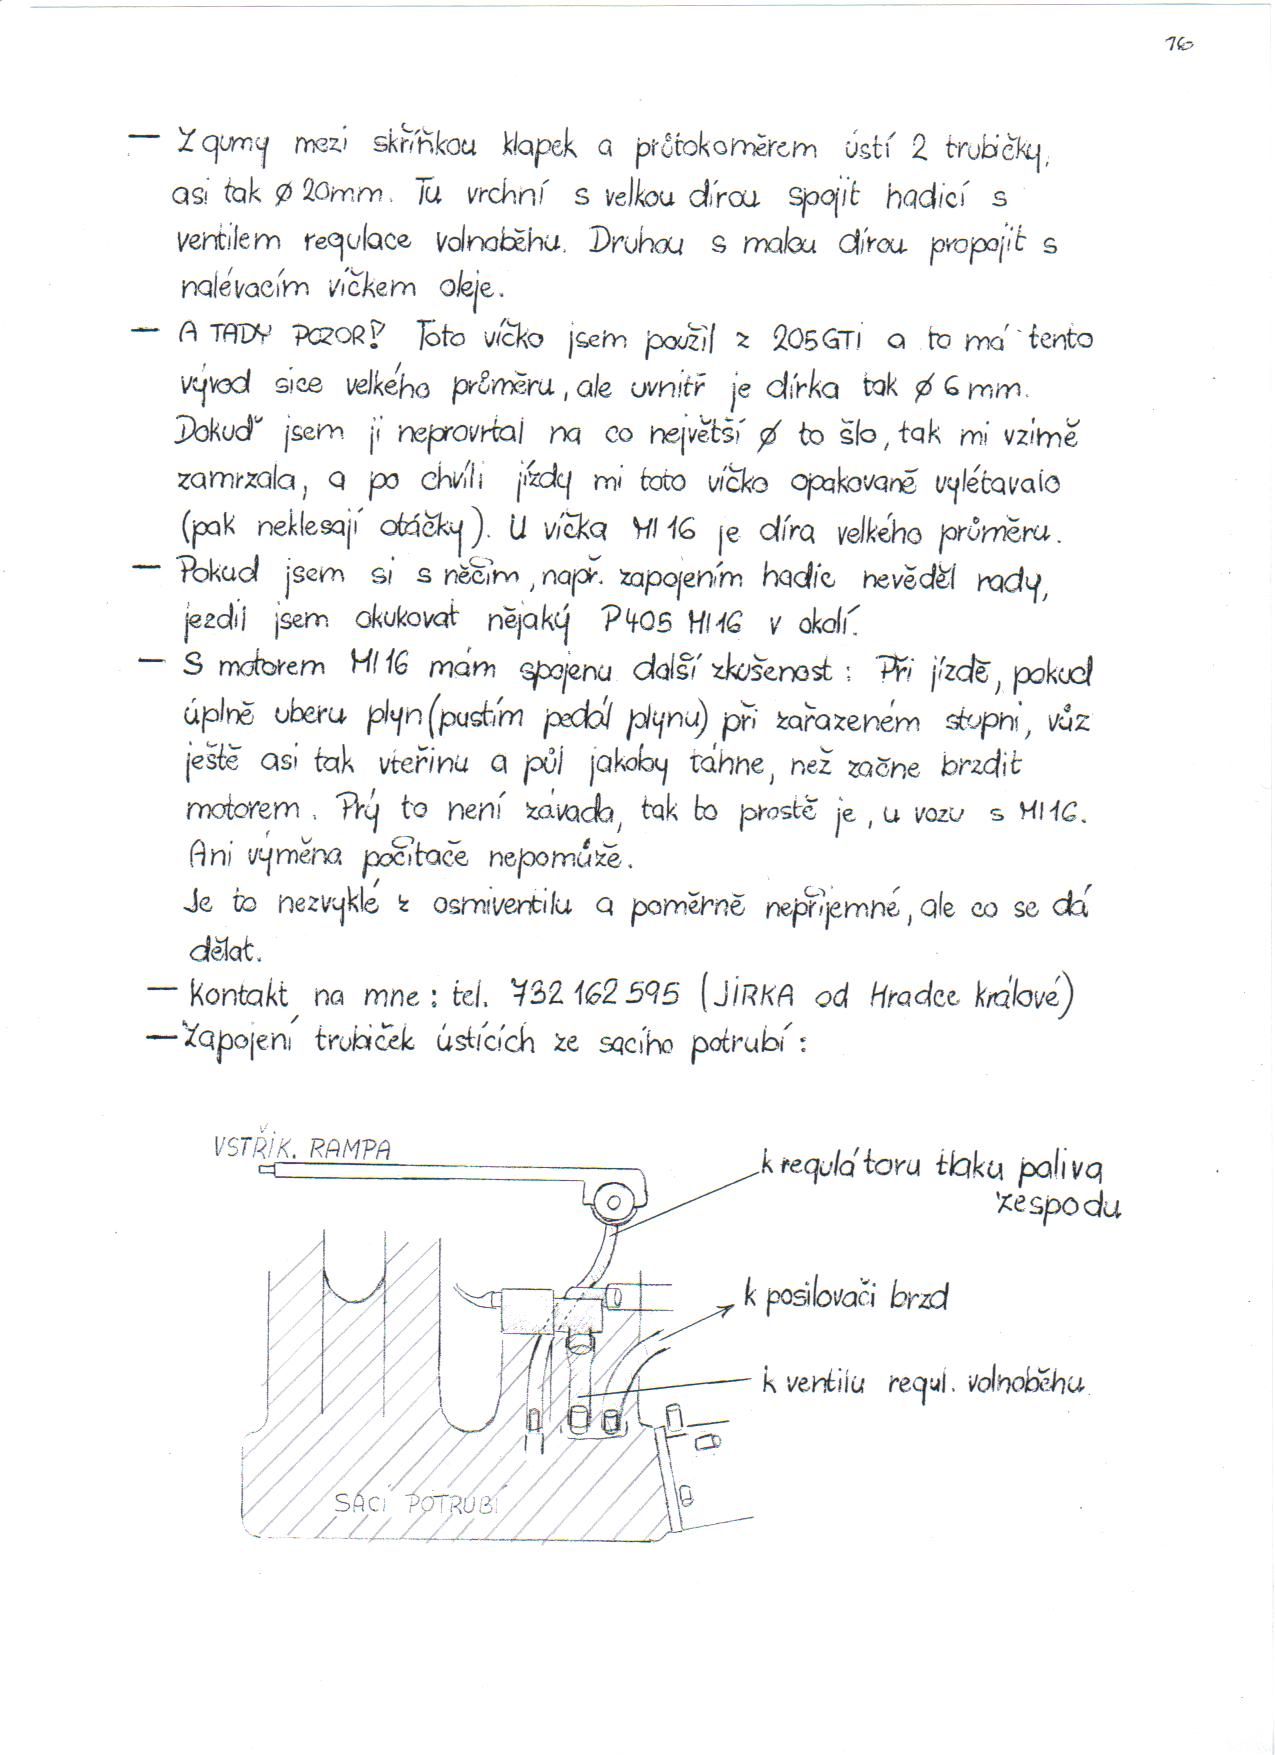 16
— Z gumy mezi skříňkou klapek a průtokoměrem ústí 2 trubičky,
asi tak ø 20mm. Tu vrchní s velkou dírou spojit hadicí s
ventilem regulace volnoběhu. Druhou s malou dírou propojit s
nalévacím víčkem oleje.
— A TADY POZOR! Toto víčko jsem použil z 205GTi a to má tento
vývod sice velkého průměru, ale uvnitř je dírka tak ø 6 mm.
Dokuď jsem ji neprovrtal na co největší ø to šlo, tak mi vzimě
zamrzala, a po chvíli jízdy mi toto víčko opakovaně vylétavalo
(pak neklesají otáčky). U víčka MI16 je díra velkého průměru.
— Pokud jsem si s něčím, např. zapojením hadic nevěděl rady,
jezdil jsem okukovat nějaký P405 MI16 v okolí.
— S motorem MI16 mám spojenu další zkušenost: Při jízdě, pokud
úplně uberu plyn (pustím pedál plynu) při zařazeném stupni, vůz
ještě asi tak vteřinu a půl jakoby táhne, než začne brzdit
motorem. Prý to není závada, tak to prostě je, u vozu s MI16.
Ani výměna počítače nepomůže.
Je to nezvyklé z osmiventilu a poměrně nepříjemné, ale co se dá
dělat.
— Kontakt na mne: tel. 732 162 595 (JIRKA od Hradce Králové)
— Zapojení trubiček ústících ze sacího potrubí:
VSTŘIK. RAMPA
k regulátoru tlaku paliva
zespodu
k posilovači brzd
k ventilu regul. volnoběhu
SACÍ POTRUBÍ